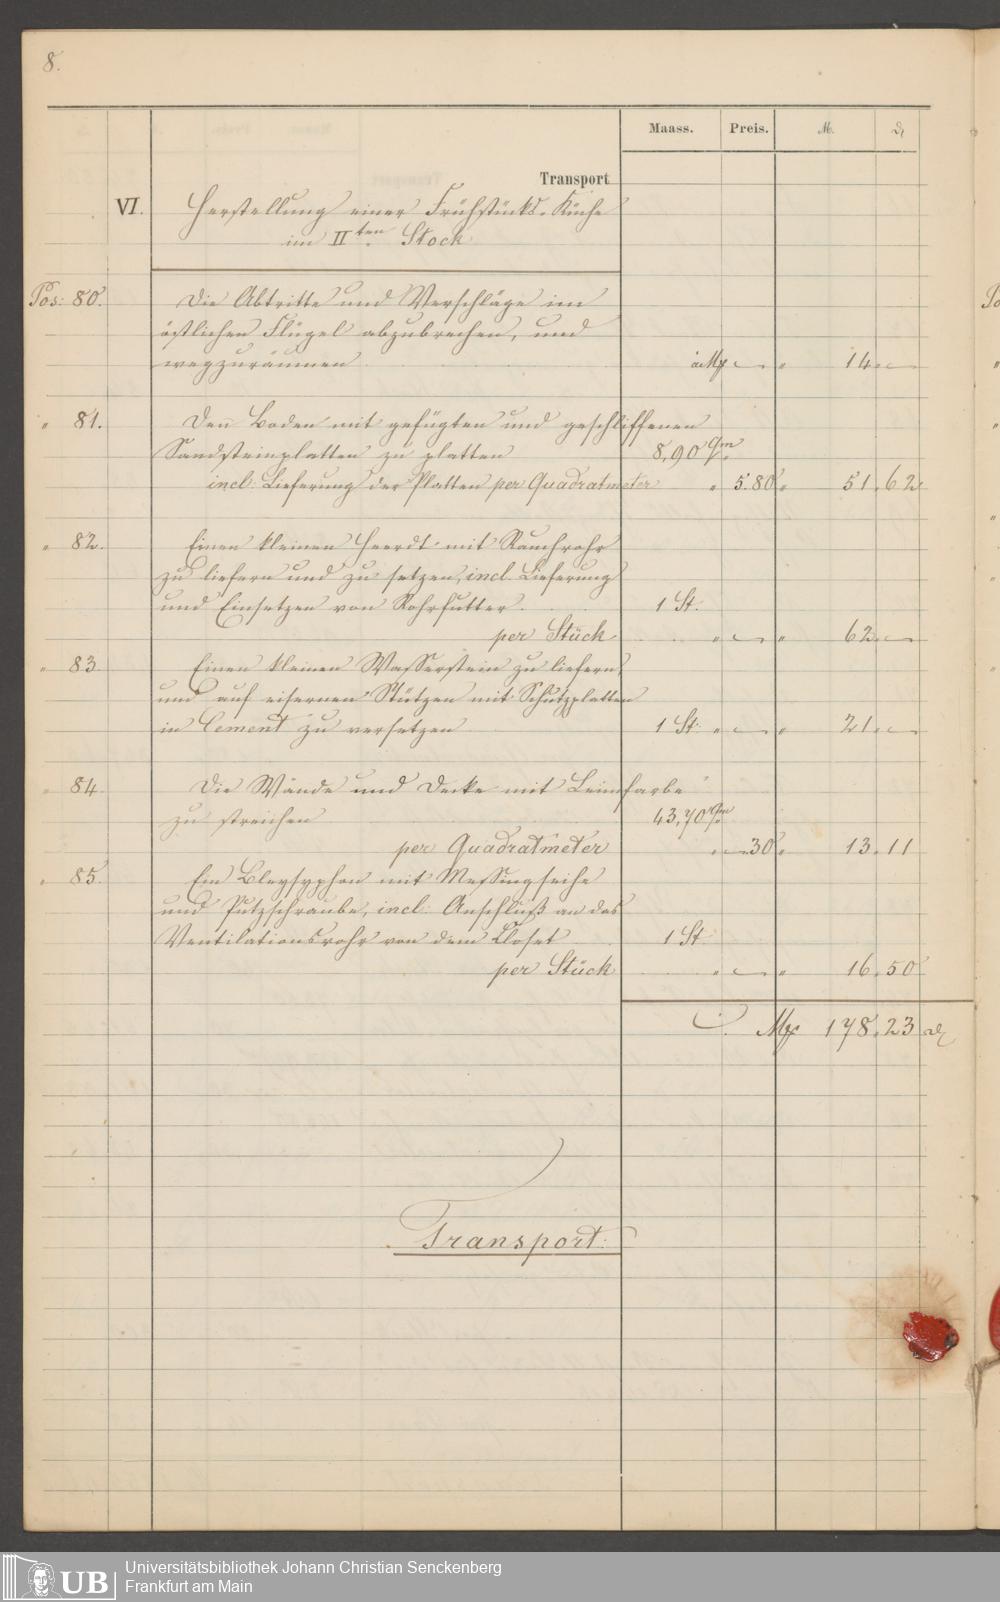 8.
Maass. Preis. M. ₰
Transport
VI. Herstellung einer Frühstücks-Küche
im IIten Stock
Pos: 80. Die Abtritte und Verschläge im
östlichen Flügel abzubrechen, und
wegzuräumen 14 „ —
„ 81. Den Boden mit gefügten und geschliffenen
Sandsteinplatten zu platten 8,90 qm
incl: Lieferung der Platten per Quadratmeter „ 5.80 „ 51 „ 62
„ 82. Einen kleinen Heerdt mit Rauchrohr
zu liefern und zu setzen, incl. Lieferung
und Einsetzen von Rohrfutter. 1 St.
per Stück „ — „ 62 „ —
„ 83. Einen kleinen Wasserstein zu liefern,
und auf eisernen Stützen mit Schutzplatten
in Cement zu versetzen 1 St. „ — „ 21 „ —
„ 84. Die Wände und Decke mit Leimfarbe
zu streichen 43,70 qm
per Quadratmeter „ — 30 „ 13 „ 11
„ 85. Ein Bleysyphon mit Messingseihe
und Putzschraube, incl: Anschluß an das
Ventilationsrohr von dem Closet 1 St
per Stück „ — „ 16 „ 50
178 „ 23 ₰
Transport:
UB
Universitätsbibliothek Johann Christian Senckenberg
Frankfurt am Main